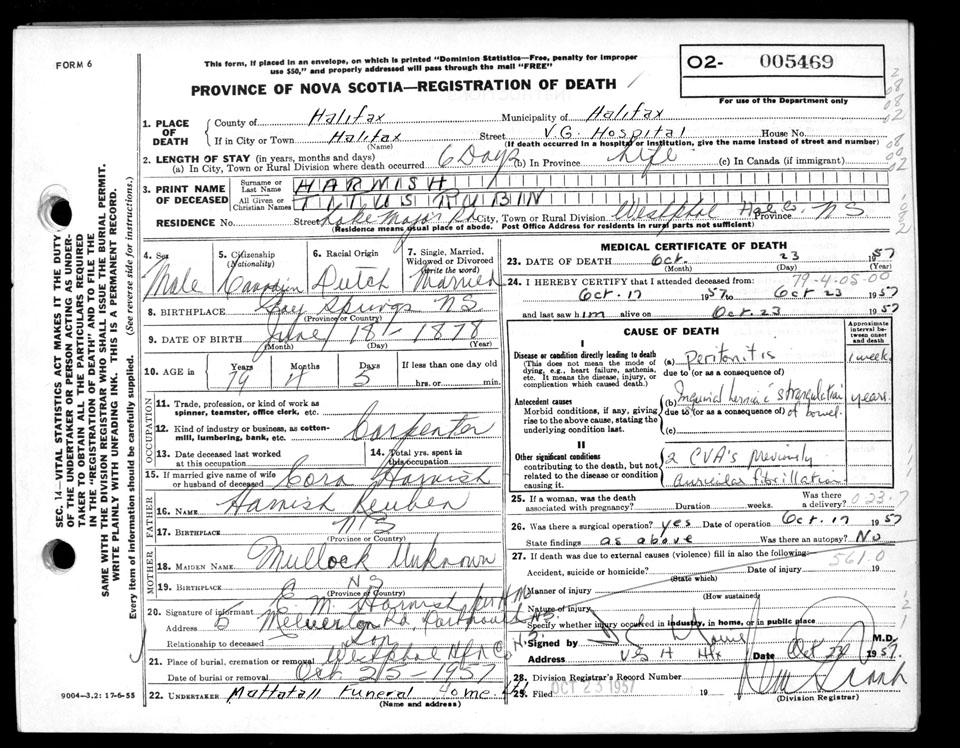 FORM 6
This form, if placed in an envelope, on which is printed "Dominion Statistics—Free, penalty for improper
use $50," and properly addressed will pass through the mail "FREE"
PROVINCE OF NOVA SCOTIA—REGISTRATION OF DEATH
O2- 005469
For use of the Department only
1. PLACE OF DEATH
County of Halifax Municipality of Halifax
If in City or Town Halifax Street V.G. Hospital House No.
(Name) (If death occurred in a hospital or institution, give the name instead of street and number)
2. LENGTH OF STAY (in years, months and days)
(a) In City, Town or Rural Division where death occurred 6 Days (b) In Province Life (c) In Canada (if immigrant)
3. PRINT NAME OF DECEASED
Surname or Last Name HARNISH
All Given or Christian Names TITUS RUBIN
RESIDENCE No. Street Lake Major Rd City, Town or Rural Division Westphal Hal. Co. Province NS
(Residence means usual place of abode. Post Office Address for residents in rural parts not sufficient)
4. Sex Male
5. Citizenship (Nationality) Canadian
6. Racial Origin Dutch
7. Single, Married, Widowed or Divorced (write the word) Married
8. BIRTHPLACE Springs NS
(Province or Country)
9. DATE OF BIRTH June 18 - 1878
(Month) (Day) (Year)
10. AGE in Years 79 Months 4 Days 5 If less than one day old
hrs. or min.
OCCUPATION
11. Trade, profession, or kind of work as spinner, teamster, office clerk, etc.
12. Kind of industry or business, as cotton-mill, lumbering, bank, etc. Carpenter
13. Date deceased last worked at this occupation
14. Total yrs. spent in this occupation
15. If married give name of wife or husband of deceased Cora Harnish
FATHER
16. NAME Harnish Reuben
17. BIRTHPLACE NS
(Province or Country)
MOTHER
18. MAIDEN NAME Mullock Unknown
19. BIRTHPLACE NS
(Province or Country)
20. Signature of informant E. M. Harnish per HM
Address 5 Rd. Dartmouth N.S.
Relationship to deceased Son
21. Place of burial, cremation or removal Westphal Hfx Co N.S.
Date of burial or removal Oct 25 - 1957
22. UNDERTAKER Mattatall Funeral Home Hfx
(Name and address)
MEDICAL CERTIFICATE OF DEATH
23. DATE OF DEATH Oct. 23 1957
(Month) (Day) (Year)
79-4-05-00
24. I HEREBY CERTIFY that I attended deceased from:
Oct. 17 1957 to Oct 23 1957
and last saw him alive on Oct. 23 1957
CAUSE OF DEATH
Approximate interval between onset and death
I
Disease or condition directly leading to death (a) Peritonitis 1 week
(This does not mean the mode of dying, e.g., heart failure, asthenia, etc. It means the disease, injury, or complication which caused death.)
due to (or as a consequence of)
Antecedent causes (b) Inguinal hernia c strangulation of bowel. years.
Morbid conditions, if any, giving rise to the above cause, stating the underlying condition last.
due to (or as a consequence of)
(c)
II
Other significant conditions contributing to the death, but not related to the disease or condition causing it.
2 CVA's previously
auricular fibrillation
25. If a woman, was the death associated with pregnancy? Duration weeks. Was there a delivery?
023.7
26. Was there a surgical operation? yes Date of operation Oct. 17 1957
State findings as above Was there an autopsy? No
27. If death was due to external causes (violence) fill in also the following: 561.0
Accident, suicide or homicide? Date of injury 19
(State which)
Manner of injury
(How sustained)
Nature of injury
Specify whether injury occurred in industry, in home, or in public place
Signed by M.D.
Address VGH Hfx Date Oct 1957.
28. Division Registrar's Record Number
29. Filed OCT 25 1957 19
(Division Registrar)
SEC. 14—VITAL STATISTICS ACT MAKES IT THE DUTY
OF THE UNDERTAKER OR PERSON ACTING AS UNDER-
TAKER TO OBTAIN ALL THE PARTICULARS REQUIRED
IN THE "REGISTRATION OF DEATH" AND TO FILE THE
SAME WITH THE DIVISION REGISTRAR WHO SHALL ISSUE THE BURIAL PERMIT.
WRITE PLAINLY WITH UNFADING INK. THIS IS A PERMANENT RECORD.
Every item of information should be carefully supplied. (See reverse side for instructions.)
9004-3.2: 17-6-55